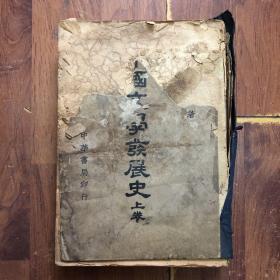 著
國文學發展史上卷
中華書局印行